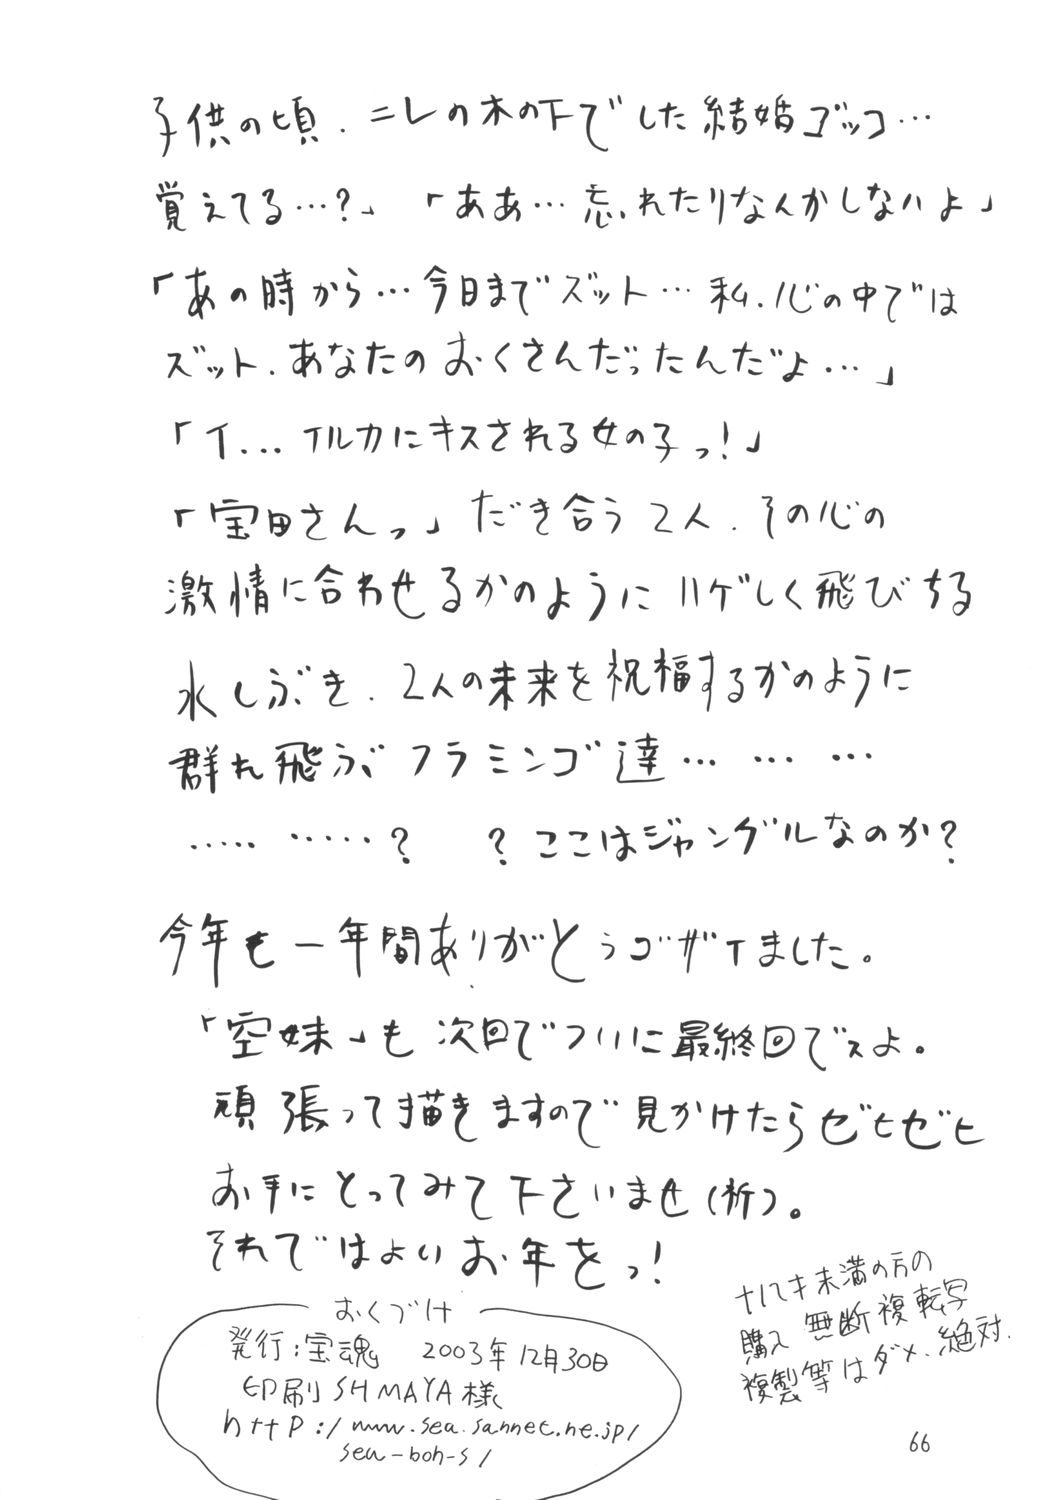 子供の頃、ニレの木の下でした結婚ゴッコ…
覚えてる…?」「ああ…忘れたりなんかしないよ」
「あの時から…今日までズット…私、心の中では
ズット、あなたのおくさんだったんだよ…」
「イ…イルカにキスされる女の子っ!」
「宝田さんっ」だき合う2人、その心の
激情に合わせるかのようにハゲしく飛びちる
水しぶき、2人の未来を祝福するかのように
群れ飛ぶフラミンゴ達… … …
…… ……? ?ここはジャングルなのか?
今年も一年間ありがとうゴザイました。
「空妹」も次回でついに最終回でスよ。
頑張って描きますので見かけたらゼヒゼヒ
お手にとってみて下さいませ(祈)。
それではよいお年をっ!
十八才未満の方の
購入 無断複転写
複製等はダメ、絶対.
おくづけ
発行:宝魂 2003年12月30日
印刷 SHIMAYA様
http:/www.sea.sannet.ne.jp/
sea-boh-s/
66